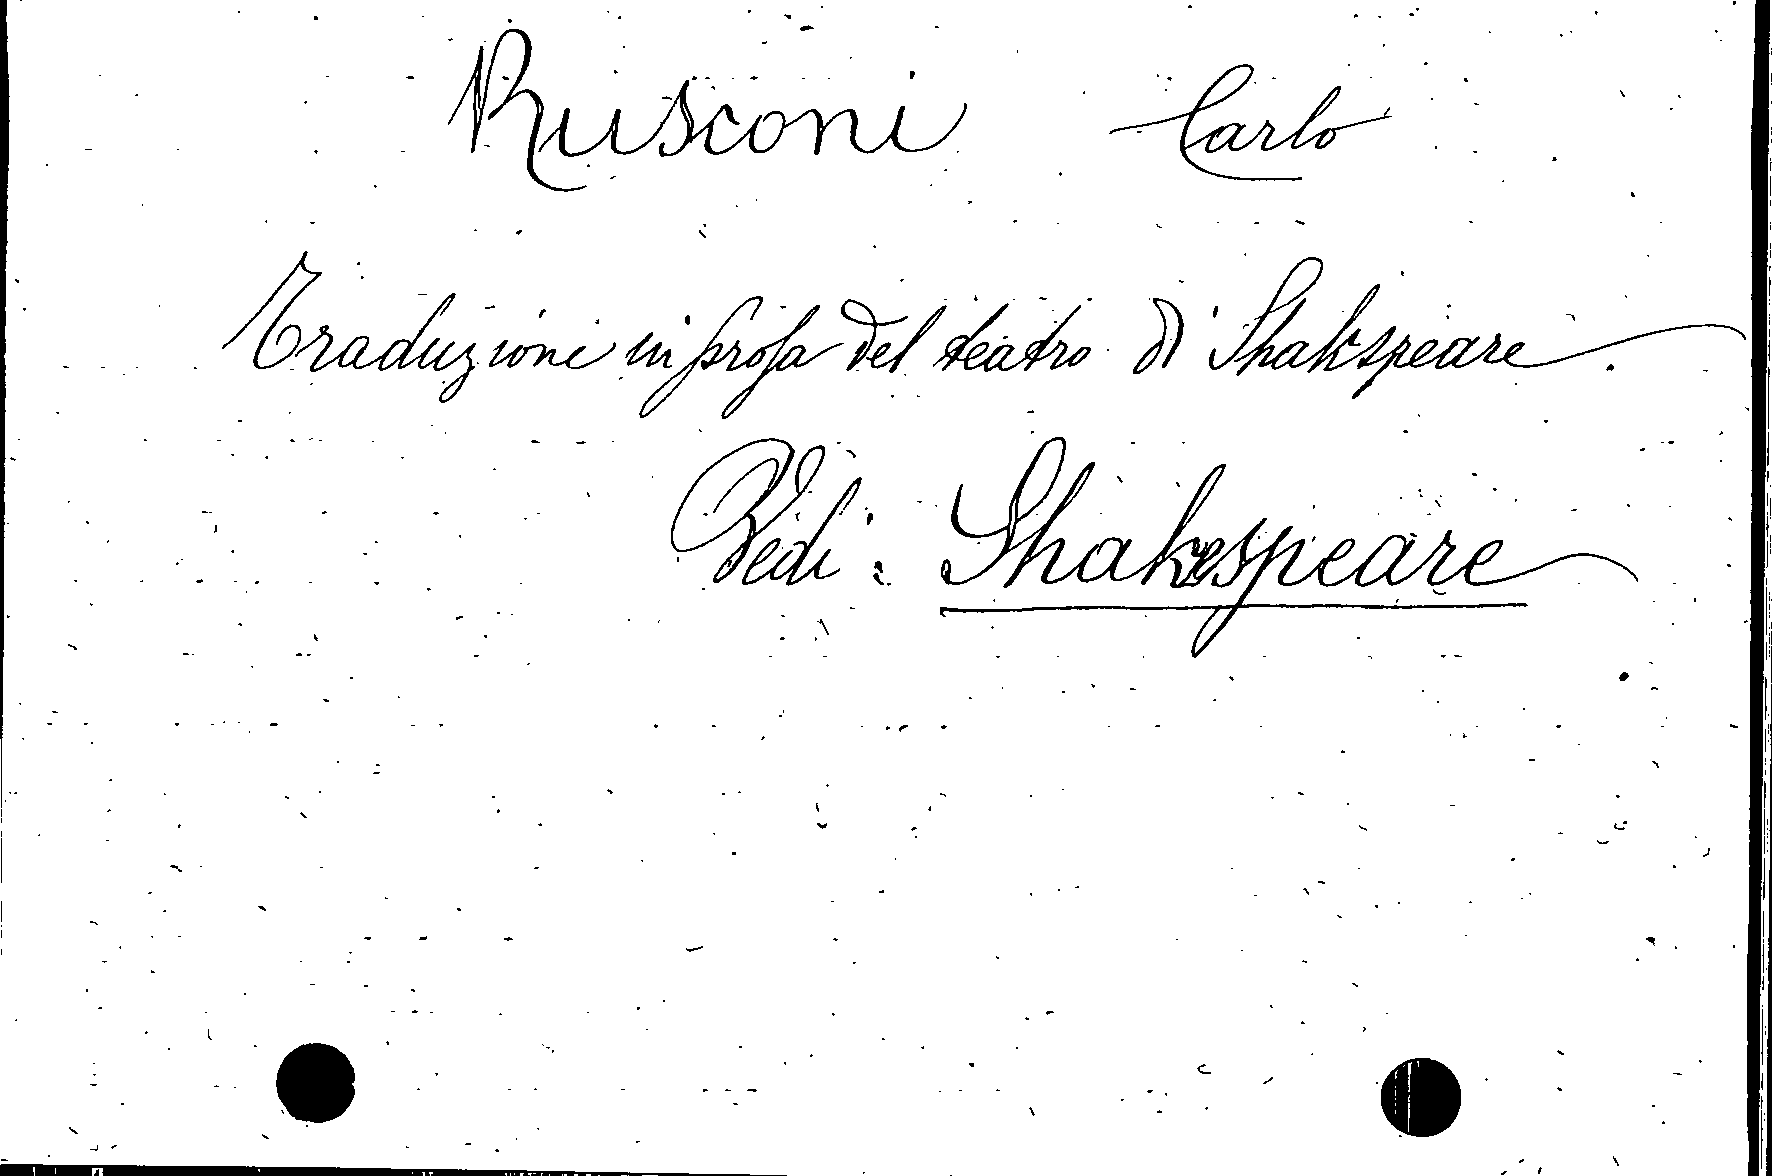 Rusconi Carlo
Traduzione in prosa del teatro di Shakspeare.
Vedi: Shakespeare